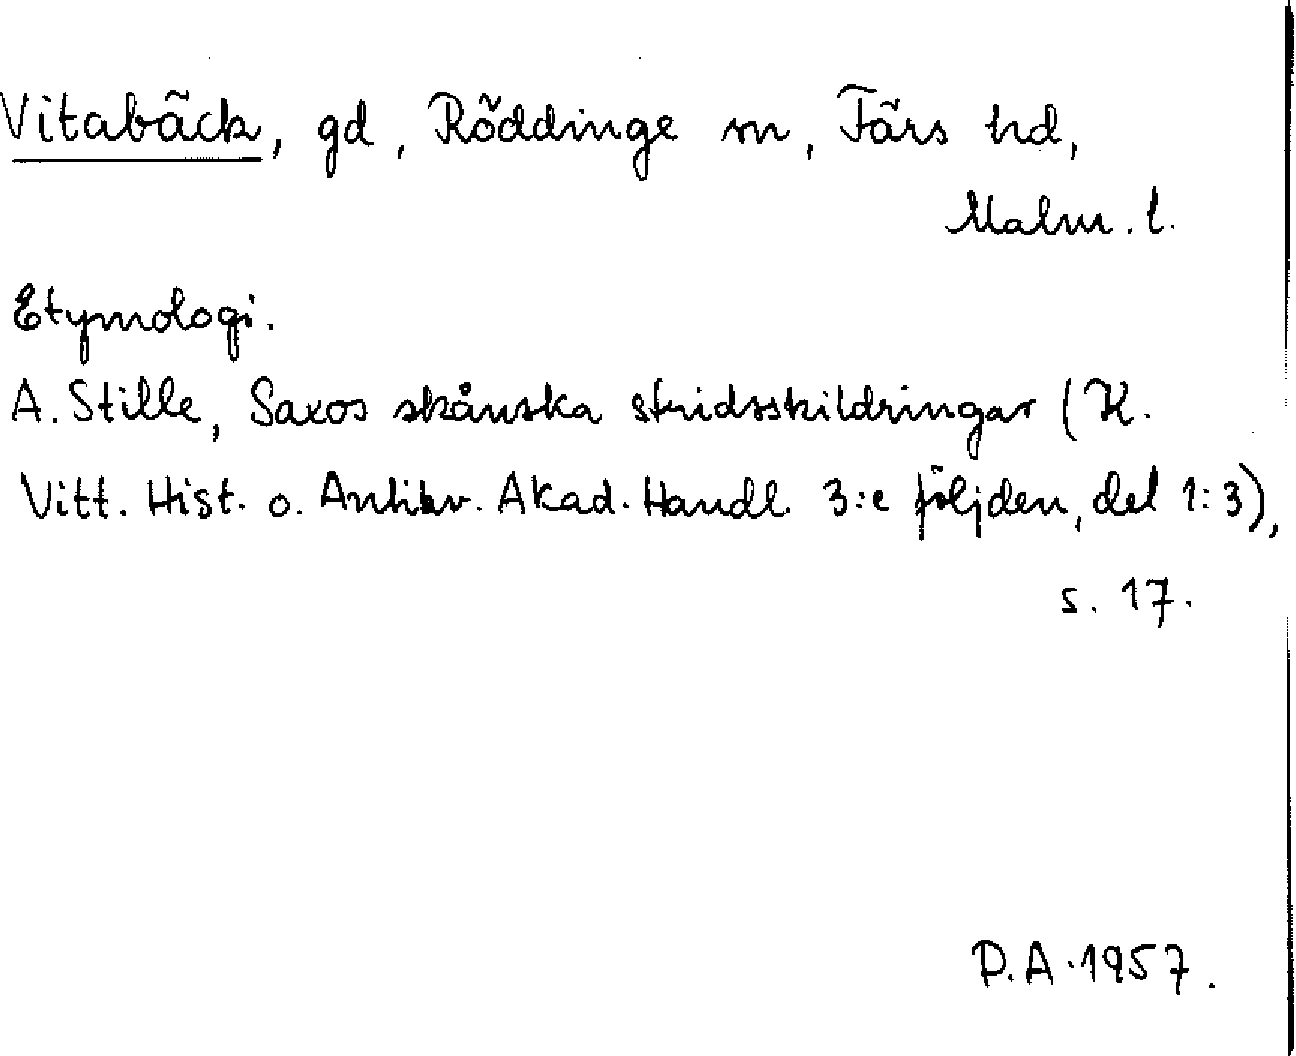 Vitabäck, gd, Röddinge sn, Färs hd,
Malm. l.
Etymologi.
A. Stille, Saxos skånska stridsskildringar (K.
Vitt. Hist. o. Antikv. Akad. Handl. 3:e följden, del 1:3),
s. 17.
P.A. 1957.